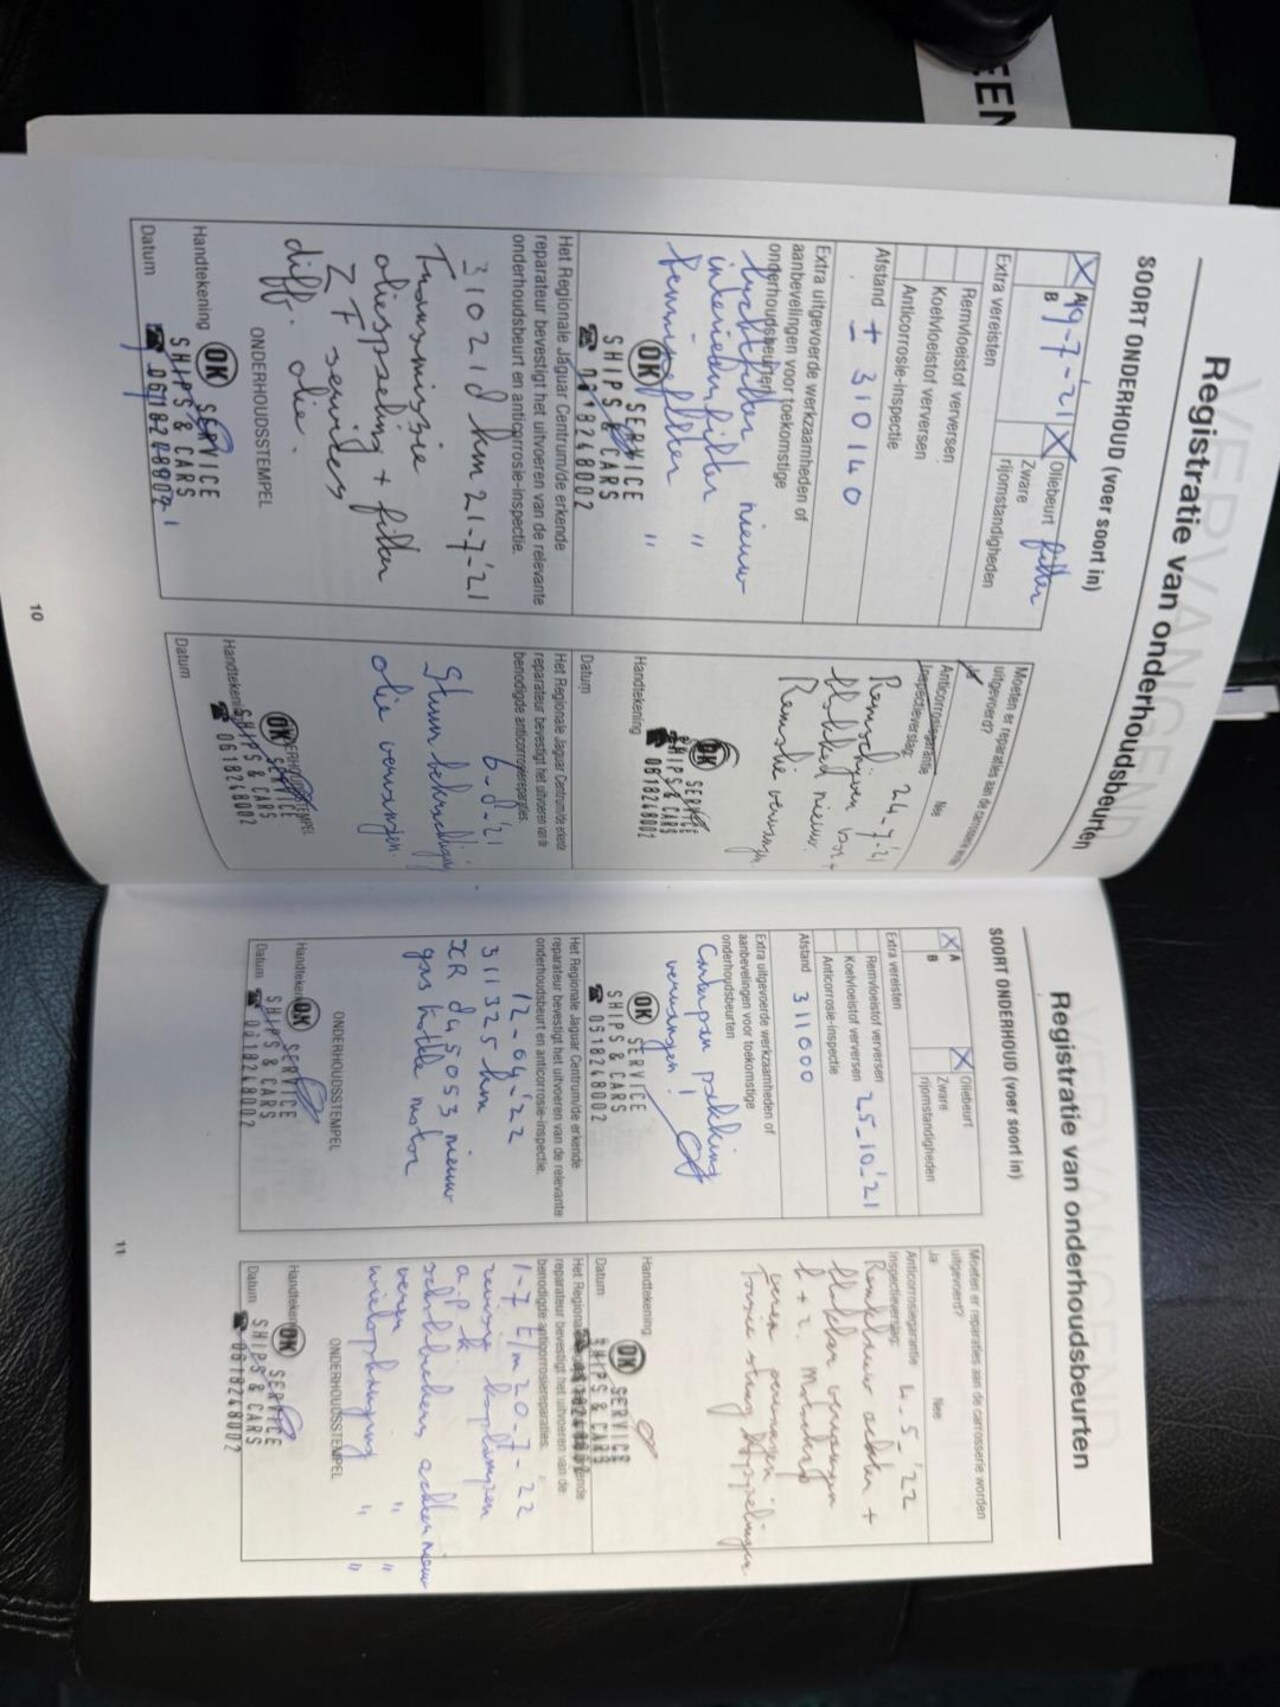 EEN
VERVANGEND
Registratie van onderhoudsbeurten
SOORT ONDERHOUD (voer soort in)
X A 19-7-'21 X Oliebeurt filter
B Zware
rijomstandigheden
Extra vereisten
Remvloeistof verversen
Koelvloeistof verversen
Anticorrosie-inspectie
Afstand ± 310140
Extra uitgevoerde werkzaamheden of
aanbevelingen voor toekomstige
onderhoudsbeurten
luchtfilter nieuw
interieurfilter "
"
OK SERVICE
SHIPS & CARS
☎ 0618248002
Het Regionale Jaguar Centrum/de erkende
reparateur bevestigt het uitvoeren van de relevante
onderhoudsbeurt en anticorrosie-inspectie.
310210 km 21-7-'21
Transmissie
oliespoeling + filter
ZF services
diff. olie.
ONDERHOUDSSTEMPEL
Handtekening OK SERVICE
SHIPS & CARS
☎ 0618248002
Datum
10
Moeten er reparaties aan de carrosserie worden
uitgevoerd?
Ja Nee
Anticorrosiegarantie
Inspectieverslag: 24-7-'21
Remschijven voor +
blokken nieuw.
Remolie vervangen
OK SERVICE
SHIPS & CARS
☎ 0618248002
Handtekening
Datum
Het Regionale Jaguar Centrum/de erkende
reparateur bevestigt het uitvoeren van de
benodigde anticorrosiereparaties.
6-8-'21
Stuurbekrachtiging
olie vervangen.
ONDERHOUDSSTEMPEL
OK SERVICE
Handtekening SHIPS & CARS
☎ 0618248002
Datum
VERVANGEND
Registratie van onderhoudsbeurten
SOORT ONDERHOUD (voer soort in)
X A X Oliebeurt
B Zware
rijomstandigheden
Extra vereisten
Remvloeistof verversen
Koelvloeistof verversen 25-10-'21
Anticorrosie-inspectie
Afstand 311000
Extra uitgevoerde werkzaamheden of
aanbevelingen voor toekomstige
onderhoudsbeurten
Carterpan pakking
vervangen!
OK SERVICE
SHIPS & CARS
☎ 0618248002
Het Regionale Jaguar Centrum/de erkende
reparateur bevestigt het uitvoeren van de relevante
onderhoudsbeurt en anticorrosie-inspectie.
12-04-'22
311325 km
XR845053 nieuw
gas throttle motor
ONDERHOUDSSTEMPEL
Handtekening OK SERVICE
SHIPS & CARS
Datum ☎ 0618248002
11
Moeten er reparaties aan de carrosserie worden
uitgevoerd?
Ja Nee
Anticorrosiegarantie
Inspectieverslag: 4-5-'22
achter +
blokken vervangen
l + r.
veren vervangen
OK SERVICE
SHIPS & CARS
☎ 0618248002
Handtekening
Datum
Het Regionale Jaguar Centrum/de erkende
reparateur bevestigt het uitvoeren van de
benodigde anticorrosiereparaties.
1-7 t/m 20-7-22
revisie koplampen
a.p.k
schokbrekers achter nieuw
veren " "
wielophanging " "
ONDERHOUDSSTEMPEL
Handtekening OK SERVICE
SHIPS & CARS
Datum ☎ 0618248002